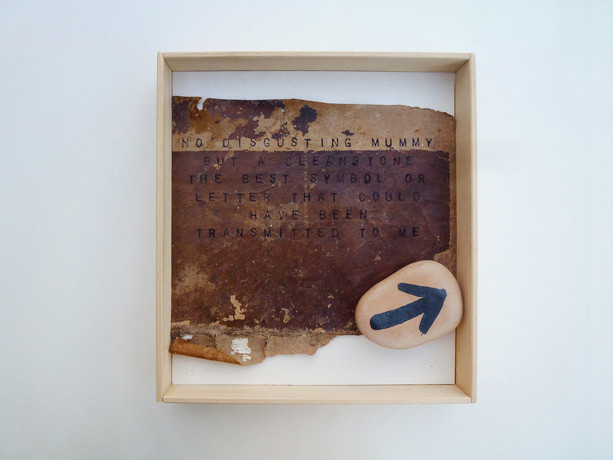 NO DISGUSTING MUMMY
BUT A CLEANSTONE
THE BEST SYMBOL OR
LETTER THAT COULD
HAVE BEEN
TRANSMITTED TO ME